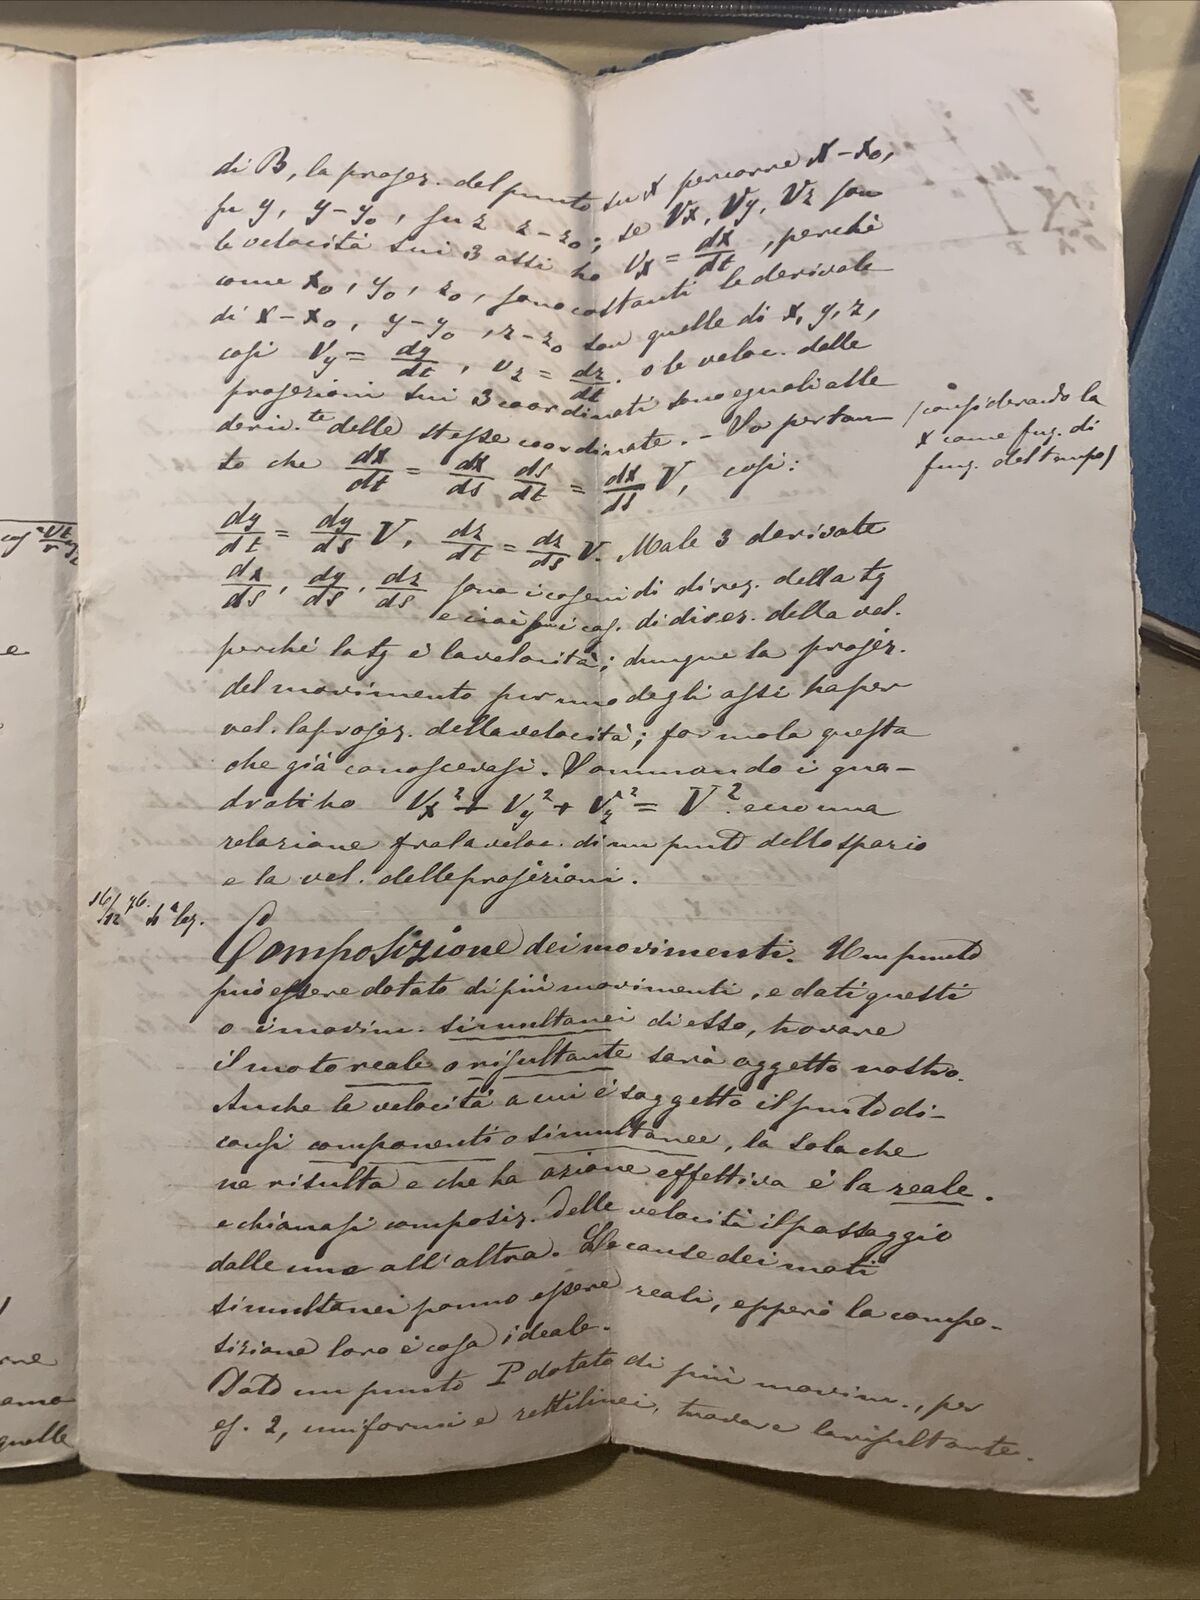 di B, la projez. del punto su x percorre x-x₀,
su y, y-y₀, su z z-z₀; se Vx, Vy, Vz son
le velocità sui 3 assi ho Vx = dx/dt, perchè
come x₀, y₀, z₀, sono costanti le derivate
di x-x₀, y-y₀, z-z₀ son quelle di x, y, z,
così Vy = dy/dt, Vz = dz/dt. o le veloc. delle
projezioni sui 3 coordinati sono eguali alle
deriv.te delle stesse coordinate. - So pertan-
(considerando la
x come fuz. di
fuz. del tempo)
to che dx/dt = dx/ds ds/dt = dx/ds V, così:
dy/dt = dy/ds V, dz/dt = dz/ds V. Ma le 3 derivate
dx/ds, dy/ds, dz/ds sono i coseni di direz. della tg
e cioè i cos. di direz. della vel.
perchè la tg è la velocità; dunque la projez.
del movimento per uno degli assi ha per
vel. la projez. della velocità; formola questa
che già conoscevasi. Sommando i qua-
drati ho Vx² + Vy² + Vz² = V² ecco una
relazione fra la veloc. di un punto dello spazio
e la vel. delle projezioni.
16/12 76. 4ª lez.
Composizione dei movimenti. Un punto
può essere dotato di più movimenti, e dati questi
o i movim. simultanei di esso, trovare
il moto reale o risultante sarà oggetto nostro.
Anche le velocità a cui è soggetto il punto di-
consi componenti o simultanee, la sola che
ne risulta e che ha azione effettiva è la reale.
e chiamasi composiz. delle velocità il passaggio
dalle une all'altra. Le cause dei moti
simultanei ponno essere reali, epperò la compo-
sizione loro è cosa ideale.
Dato un punto P dotato di più movim., per
es. 2, uniformi e rettilinei, trovare la risultante.
rne
amo
quelle